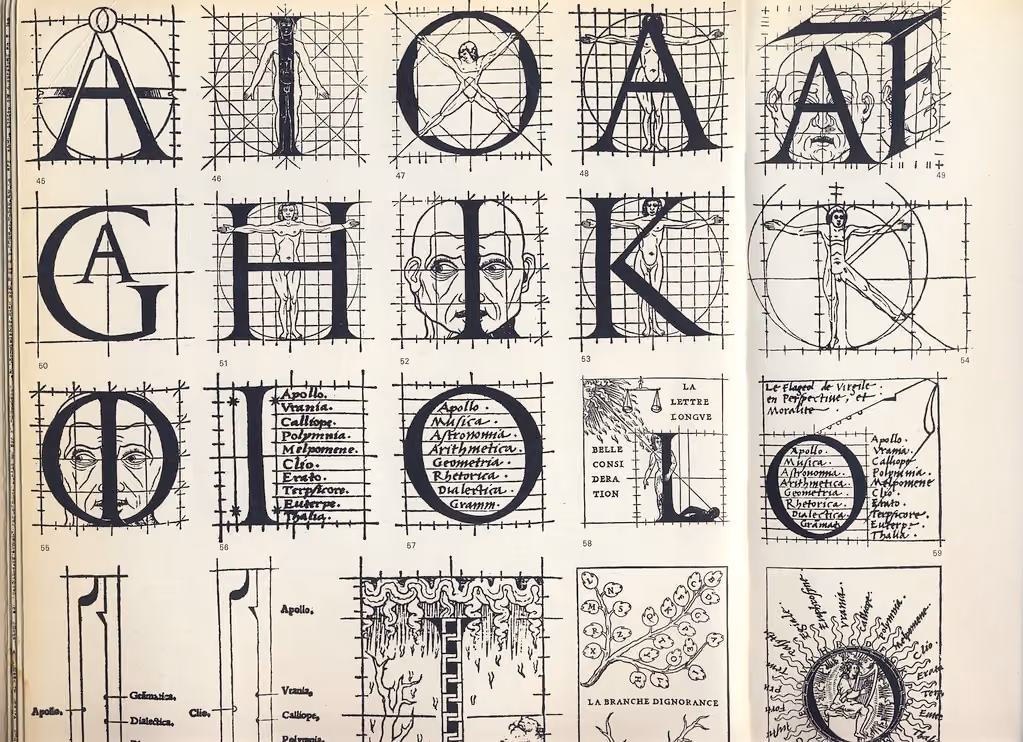 A
I
O
A
A F
45
46
47
48
49
G A
H
I
K
K
50
51
52
53
54
O I
I
Apollo.
Vrania.
Calliope.
Polymnia.
Melpomene.
Clio.
Erato.
Terpsicore.
Euterpe.
Thalia.
O
Apollo.
Musica.
Astronomia.
Arithmetica.
Geometria.
Rhetorica.
Dialectica.
Gramm.
LA
LETTRE
LONGVE
BELLE
CONSI
DERA
TION
L
Le Flageol de Virgile.
en Perspective, et
Moralite.
O
Apollo.
Musica.
Astronomia.
Arithmetica.
Geometria.
Rhetorica.
Dialectica.
Gramat.
Apollo.
Vrania.
Calliope
Polymnia.
Melpomene
Clio.
Erato.
Terpsicore.
Euterpe.
Thalia.
55
56
57
58
59
Apollo,
Grãmatica,
Dialectica,
Apollo,
Clio,
Vrania,
Calliope,
Polymnia,
I
LA BRANCHE DIGNORANCE
Vrania.
Calliope.
Melpomene.
Clio.
O